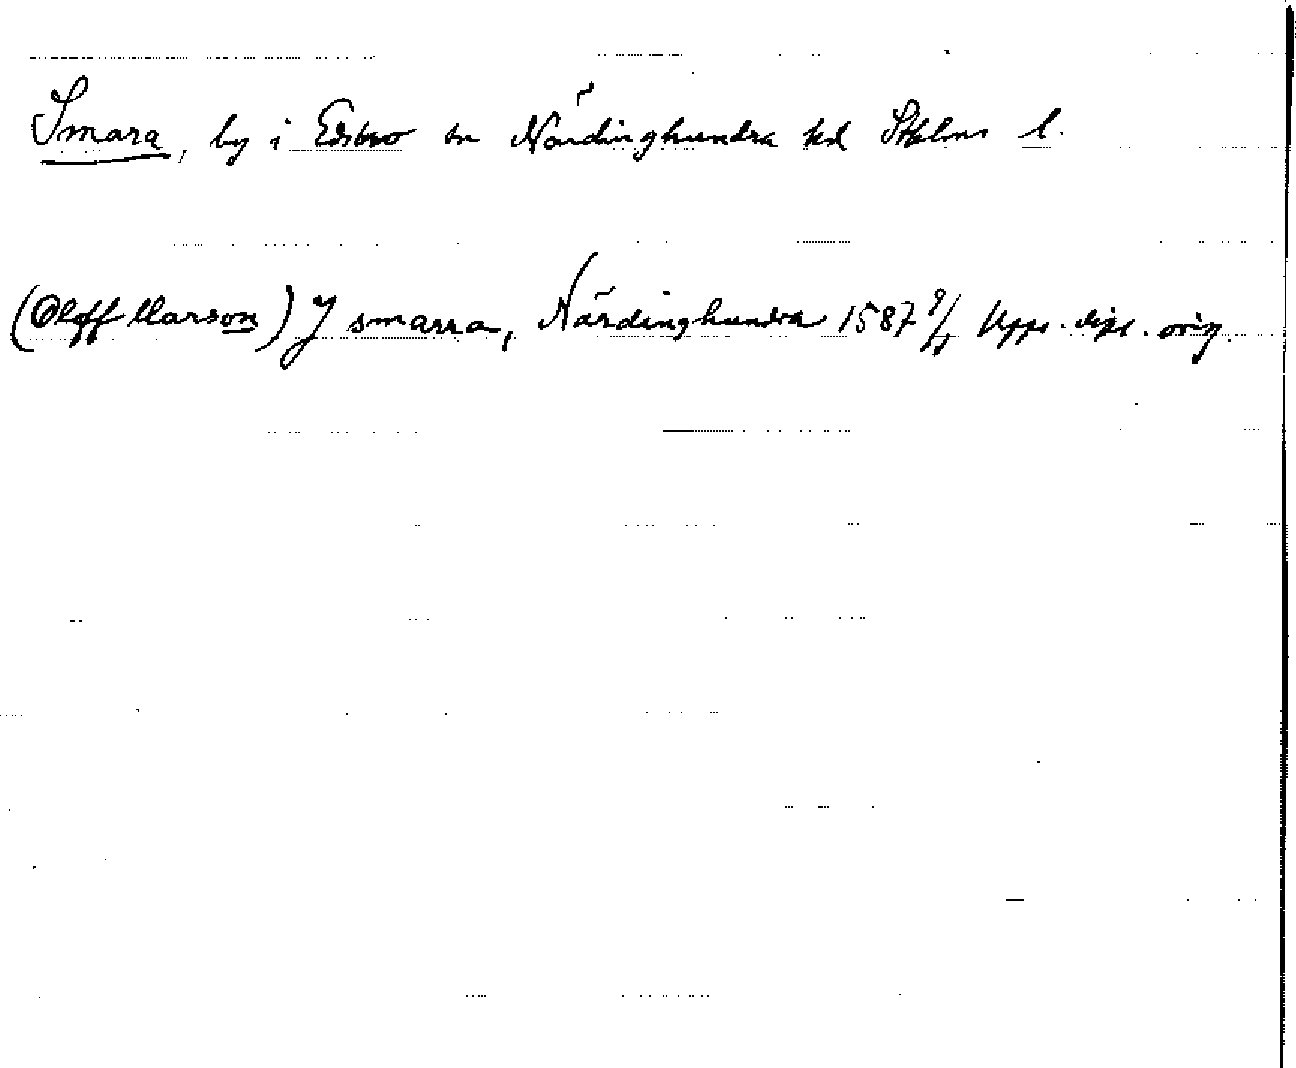 Smara, by i Edsbro sn Närdinghundra hd Sthlms l.
(Oloff Larson) J smarra, Närdinghundra 1587 9/4 Upps. dipl. orig.